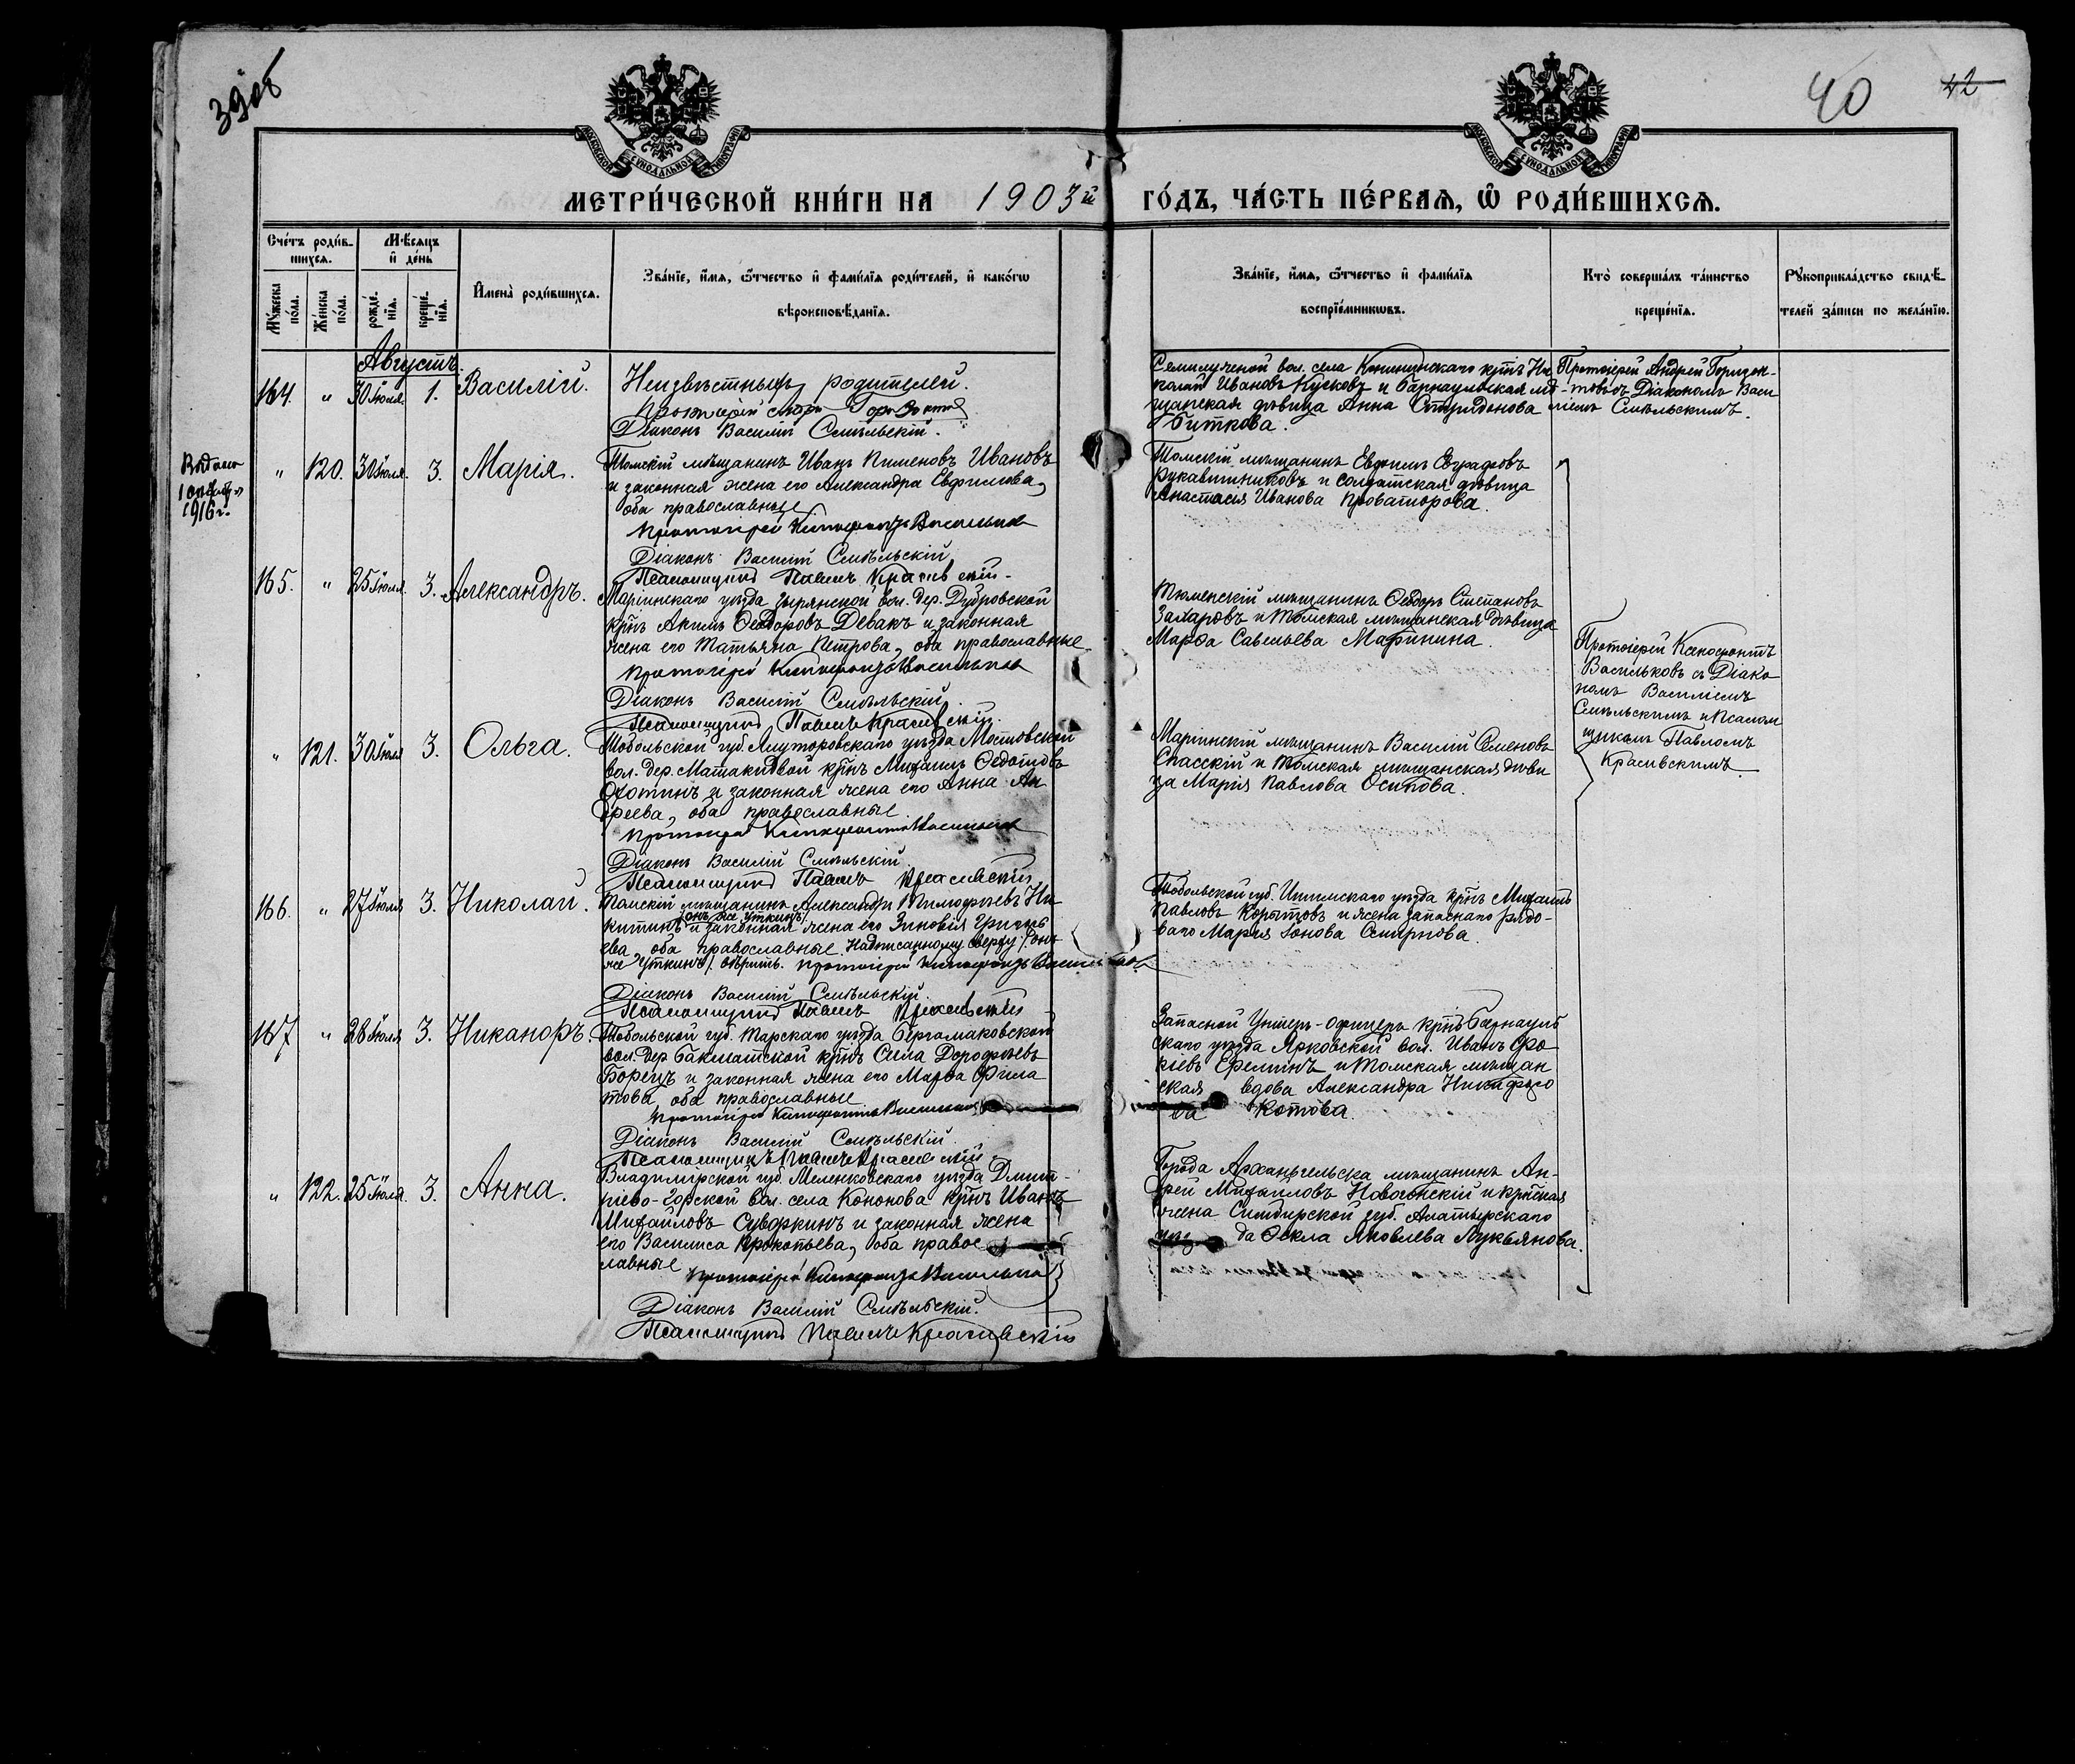 39об
40
42
МОСКОВСКОЙ СУНОДАЛЬНОЙ ТИПОГРАФІИ
МОСКОВСКОЙ СУНОДАЛЬНОЙ ТИПОГРАФІИ
МЕТРИ́ЧЕСКОЙ КНИ́ГИ НА 1903й ГО́ДЪ, ЧА́СТЬ ПЕ́РВАѦ, Ѡ҆ РОДИ́ВШИХСѦ.
Сче́тъ роди́в-
шихсѧ.
Мѣ́сѧцъ
и҆ де́нь
Мꙋ́жеска
по́ла.
Же́нска
по́ла.
рожде́-
нїѧ.
креще́-
нїѧ.
И҆мена̀ роди́вшихсѧ.
Зва́нїе, и҆́мѧ, ѻ҆́тчество и҆ фами́лїѧ роди́телей, и҆ како́гѡ
вѣроисповѣ́данїѧ.
Зва́нїе, и҆́мѧ, ѻ҆́тчество и҆ фами́лїѧ
воспрїе́мникѡвъ.
Кто̀ соверша́лъ та́инство
креще́нїѧ.
Рꙋкоприкла́дство свидѣ́-
телей за́писи по жела́нїю.
Августъ.
164. " 30 Іюля. 1. Василій.
Неизвѣстныхъ родителей.
Діаконъ Василій Смѣльскій.
вол. села кртъ Ни
колай Ивановъ Кусковъ и Барнаульская мѣ-
щанская дѣвица Анна Спиридонова
Биткова.
Протоіерей Андрей Горизон-
товъ съ Діакономъ Васи
ліемъ Смѣльскимъ.
Выдано
1916 г.
" 120. 30 Іюля. 3. Марія.
Томскій мѣщанинъ Иванъ Пименовъ Ивановъ
и законная жена его Александра Евфимова,
оба православные
Протоіерей Ксенофонтъ Васильковъ
Діаконъ Василій Смѣльскій
Псаломщикъ Павелъ Красивскій
Томскій мѣщанинъ Евфимъ Евграфовъ
Рукавишниковъ и солдатская дѣвица
Анастасія Иванова Проваторова.
165. " 25 Іюля. 3. Александръ.
Маріинскаго уѣзда Зырянской вол. дер. Дубровской
крнъ Акимъ Ѳеодоровъ Девакъ и законная
жена его Татьяна Петрова, оба православные
Протоіерей Ксенофонтъ Васильковъ
Діаконъ Василій Смѣльскій
Псаломщикъ Павелъ Красивскій
Тюменскій мѣщанинъ Ѳеодоръ Степановъ
Захаровъ и Томская мѣщанская дѣвица
Марѳа Савельева Маринина.
Протоіерей Ксенофонтъ
Васильковъ съ Діако
номъ Василіемъ
Смѣльскимъ и Псалом
щикомъ Павломъ
Красивскимъ.
" 121. 30 Іюля 3. Ольга.
Тобольской губ. Ялуторовскаго уѣзда Мостовской
вол. дер. крнъ Михаилъ Ѳедотовъ
Охотинъ и законная жена его Анна Ан
дреева, оба православные
Протоіерей Ксенофонтъ Васильковъ
Діаконъ Василій Смѣльскій
Псаломщикъ Павелъ Красивскій
Маріинскій мѣщанинъ Василій Семеновъ
Спасскій и Томская мѣщанская дѣви
ца Марія Павлова Осипова.
166. " 27 Іюля 3. Николай.
Томскій мѣщанинъ Александръ Тимофѣевъ Ни
/онъ же Уткинъ/
китинъ и законная жена его Зиновія Григорь
ева, оба православные. Надписанному сверху /:онъ
же Уткинъ:/ вѣрить. Протоіерей Ксенофонтъ Васильковъ
Діаконъ Василій Смѣльскій.
Псаломщикъ Павелъ Красивскій
Тобольской губ. Ишимскаго уѣзда крнъ Михаилъ
Павловъ Корытовъ и жена запаснаго рядо-
ваго Марія Іонова Смирнова.
167 " 28 Іюля 3. Никаноръ.
Тобольской губ. Тарскаго уѣзда Бергамаковской
вол. дер. крнъ Сила Дорофѣевъ
Борецъ и законная жена его Марѳа Фила
това, оба православные
Протоіерей Ксенофонтъ Васильковъ
Діаконъ Василій Смѣльскій.
Псаломщикъ Павелъ Красивскій
Запасной Унтеръ-офицеръ крнъ Барнауль
скаго уѣзда Ярковской вол. Иванъ Фо
кіевъ Ереминъ и Томская мѣщан
ская вдова Александра Никифоро
ва Котова.
" 122. 25 Іюля. 3. Анна.
Владимірской губ. Меленковскаго уѣзда Дмит-
ріево-Горской вол. села Кононова крнъ Иванъ
Михайловъ Суворкинъ и законная жена
его Василиса Прокопьева, оба правос
лавные
Протоіерей Ксенофонтъ Васильковъ
Діаконъ Василій Смѣльскій.
Псаломщикъ Павелъ Красивскій
Города Архангельска мѣщанинъ Ан-
дрей Михаиловъ и крнская
жена Симбирской губ. Алатырскаго
уѣзда Ѳекла Яковлева Лукьянова.